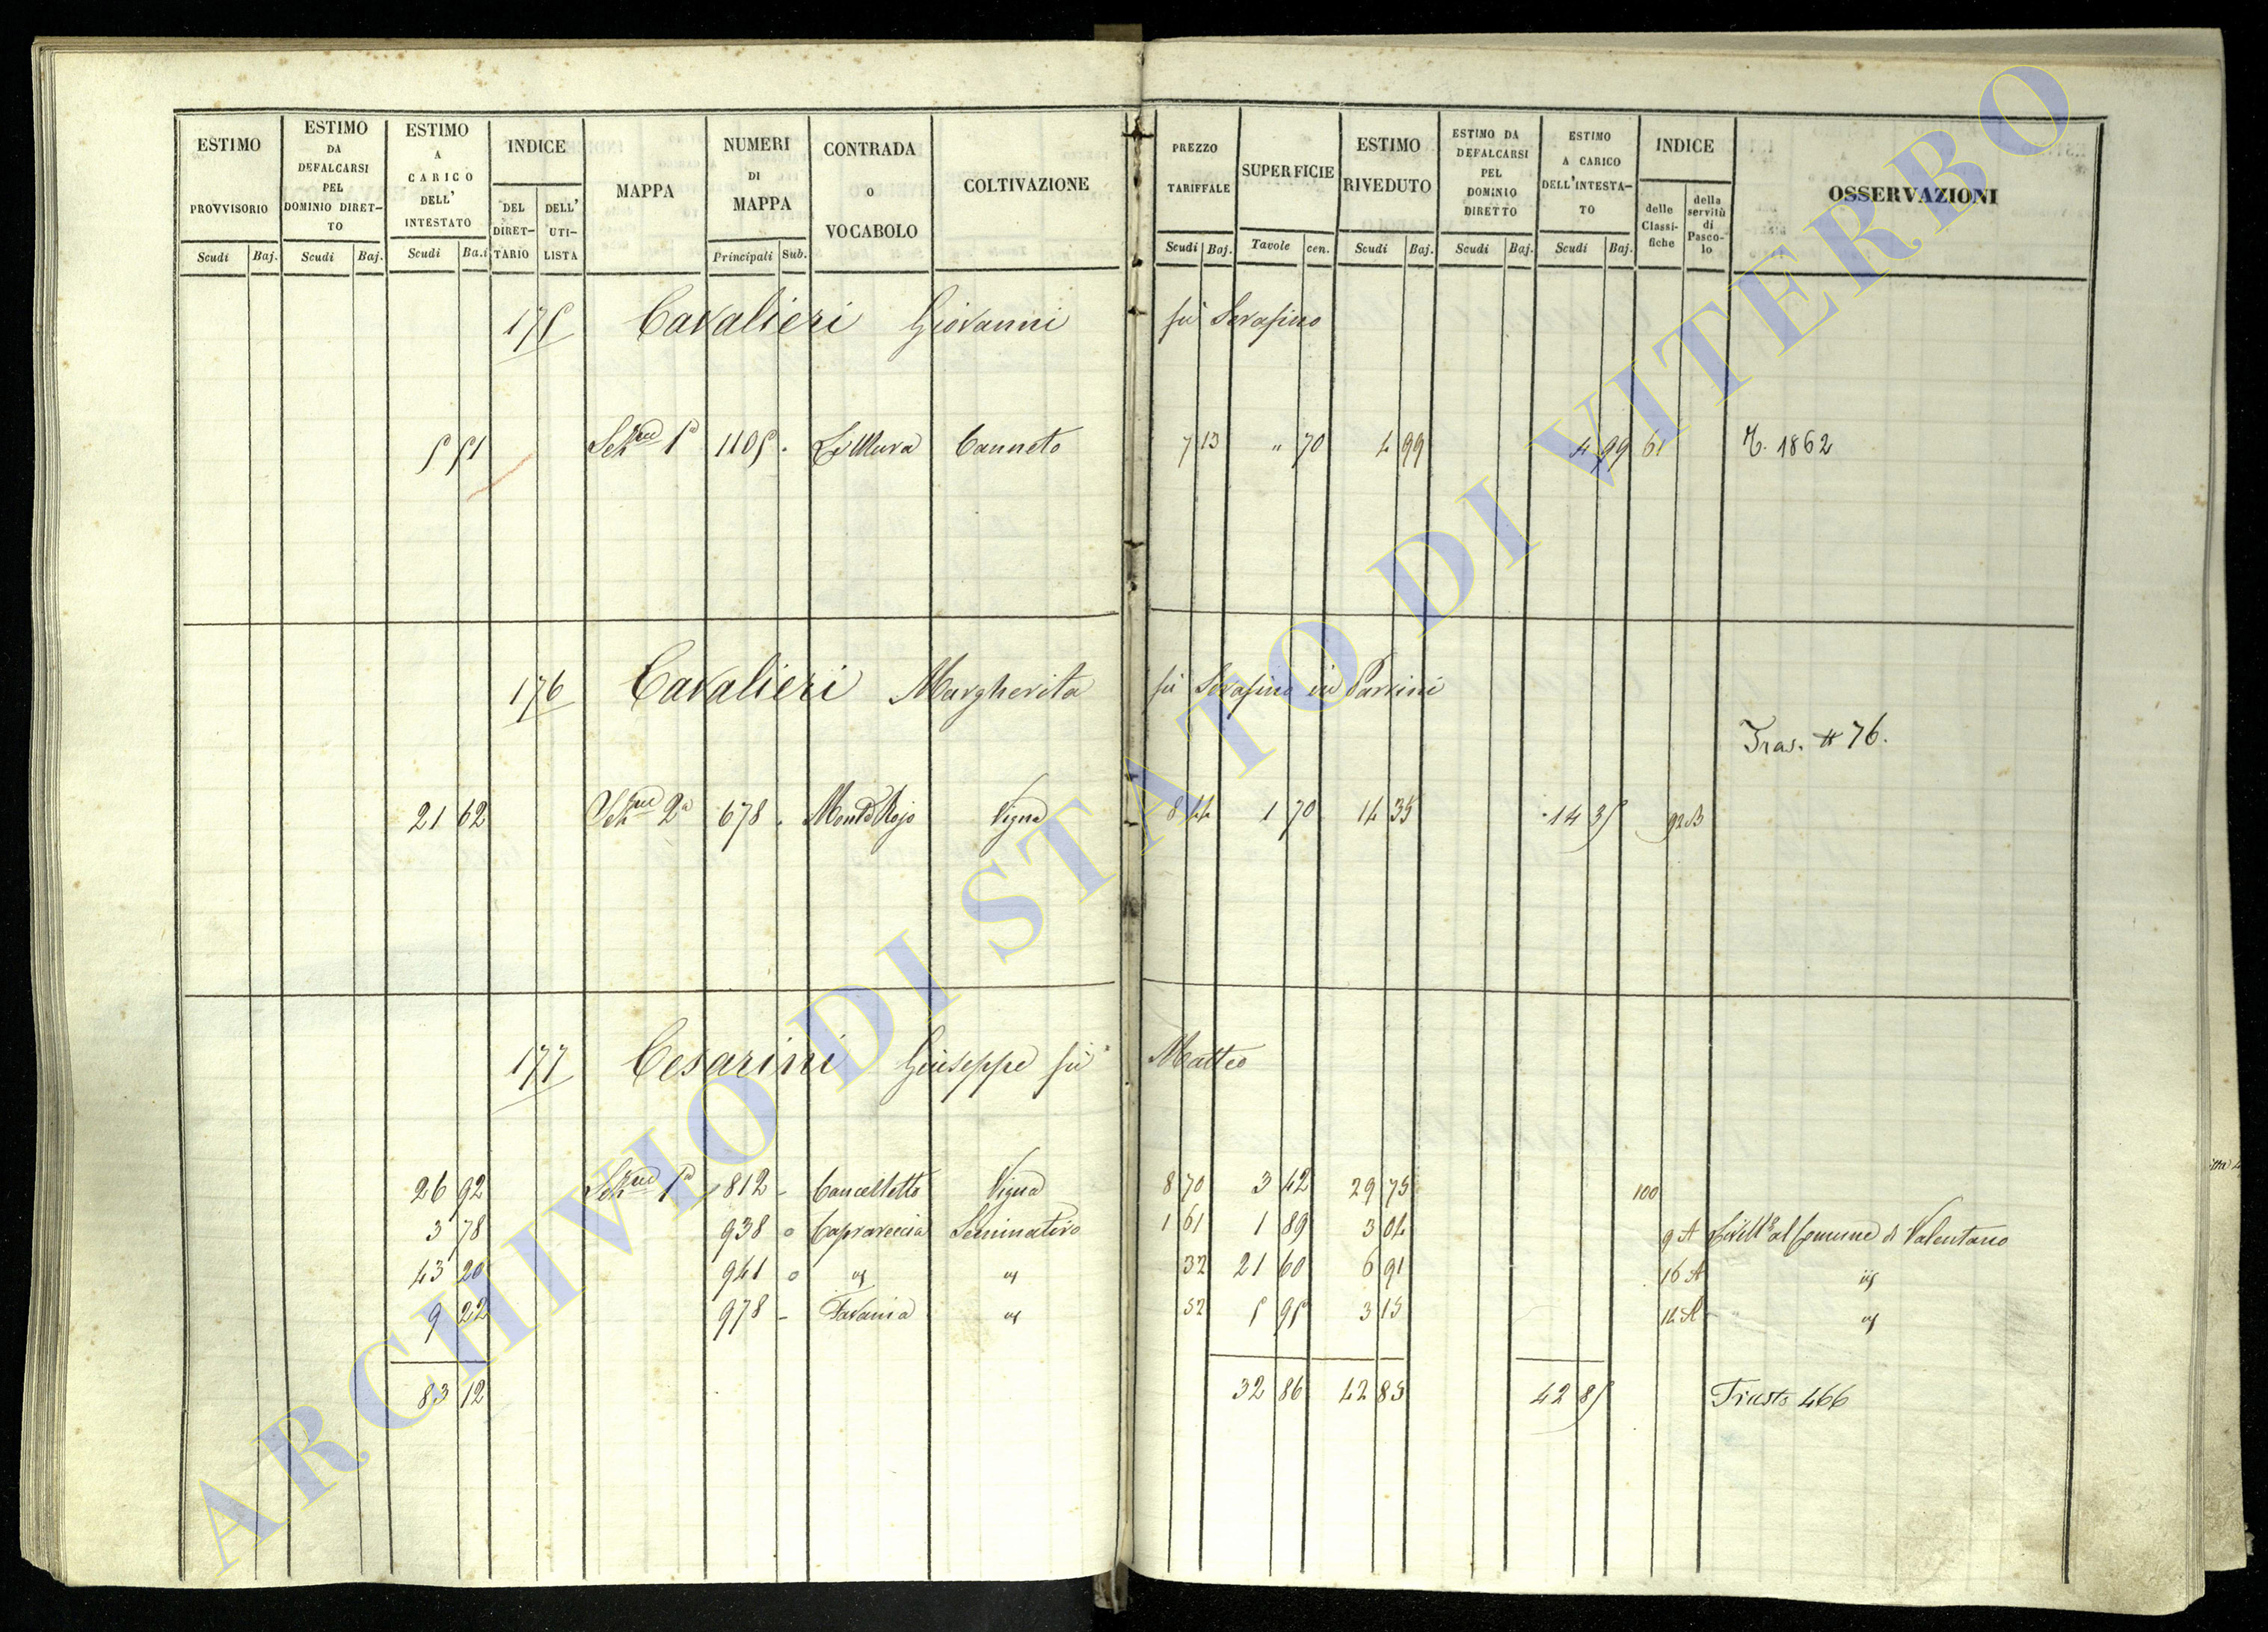 ESTIMO PROVVISORIO Scudi Baj.
ESTIMO DA DEFALCARSI PEL DOMINIO DIRET-TO Scudi Baj.
ESTIMO A CARICO DELL' INTESTATO Scudi Ba.i
INDICE DEL DIRET-TARIO DELL' UTI-LISTA
MAPPA
NUMERI DI MAPPA Principali Sub.
CONTRADA O VOCABOLO
COLTIVAZIONE
PREZZO TARIFFALE Scudi Baj.
SUPERFICIE Tavole cen.
ESTIMO RIVEDUTO Scudi Baj.
ESTIMO DA DEFALCARSI PEL DOMINIO DIRETTO Scudi Baj.
ESTIMO A CARICO DELL'INTESTA-TO Scudi Baj.
INDICE delle Classi-fiche della servitù di Pasco-lo
OSSERVAZIONI
175 Cavalieri Giovanni fù Serafino
5 51 1a 1105 Le Mura Canneto 7 13 " 70 4 99 4 99 61 1862
176 Cavalieri Margherita fù Serafino in Parrini
Tras. # 76.
21 62 2a 678 Vigna 8 44 1 70 14 35 14 35 92 B
177 Cesarini Giuseppe fù Matteo
26 92 1a 812 - Cancelletto Vigna 8 70 3 42 29 75 100
3 78 938 o Caprareccia Seminativo 1 61 1 89 3 04 9 A al Comune di Valentano
43 20 941 o " " 32 21 60 6 91 16 A "
9 22 978 - " 52 5 95 3 15 14 A "
83 12 32 86 42 85 42 85 466
ARCHIVIO DI STATO DI VITERBO